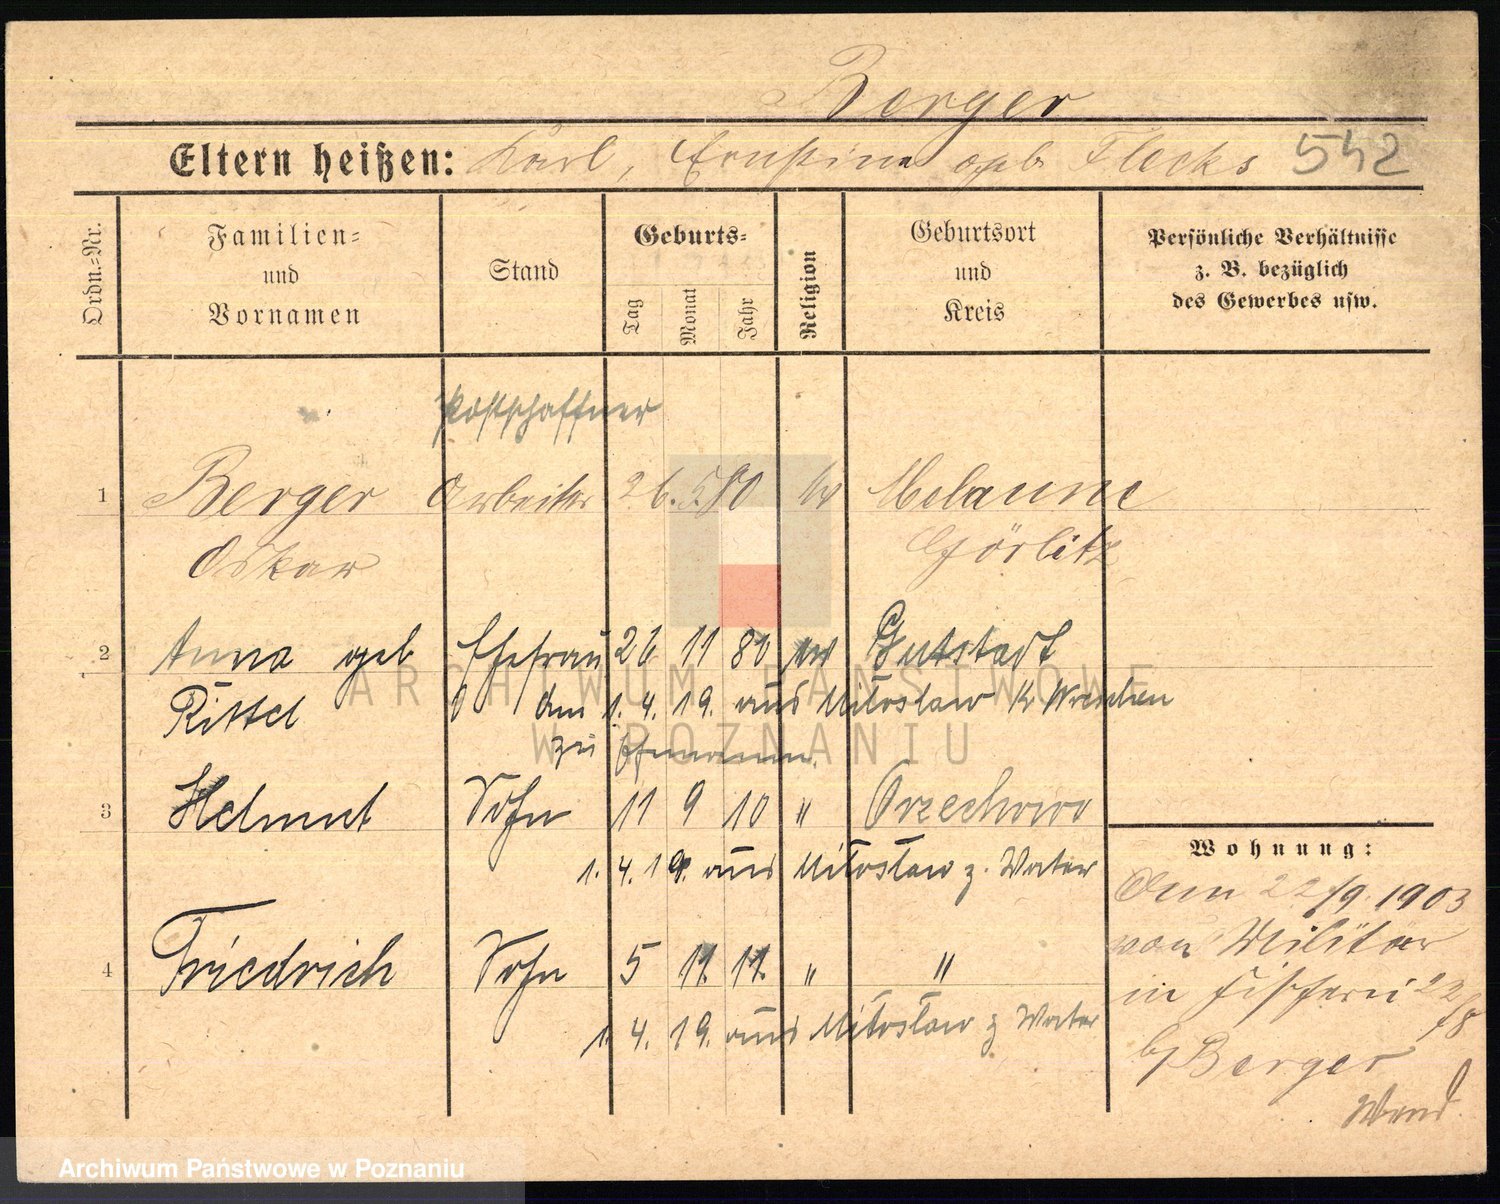 Berger
Eltern heißen: Karl, Ernstine geb Flecks 542
Ordn.-Nr.
Familien- und Vornamen
Stand
Geburts-
Tag
Monat
Jahr
Religion
Geburtsort und Kreis
Persönliche Verhältnisse
z. B. bezüglich
des Gewerbes usw.
Postschaffner
1 Berger Arbeiter 26. 5. 80 ev Melaune
Oskar Görlitz
2 Anna geb Ehefrau 26 11 80 ev Gutstadt
Rittel Am 1. 4. 19. aus Miłosław Kr Wreschen
zu Ehemann.
3 Helmut Sohn 11 9 10 " Orzechowo
1. 4. 19. aus Miłosław z. Vater
4 Friedrich Sohn 5 11. 11. " "
1. 4. 19. aus Miłosław z Vater
Wohnung:
Am 22/9. 1903
von Militär
in Fischerei 22/8
b/ Berger
ARCHIWUM PAŃSTWOWE
W POZNANIU
Archiwum Państwowe w Poznaniu